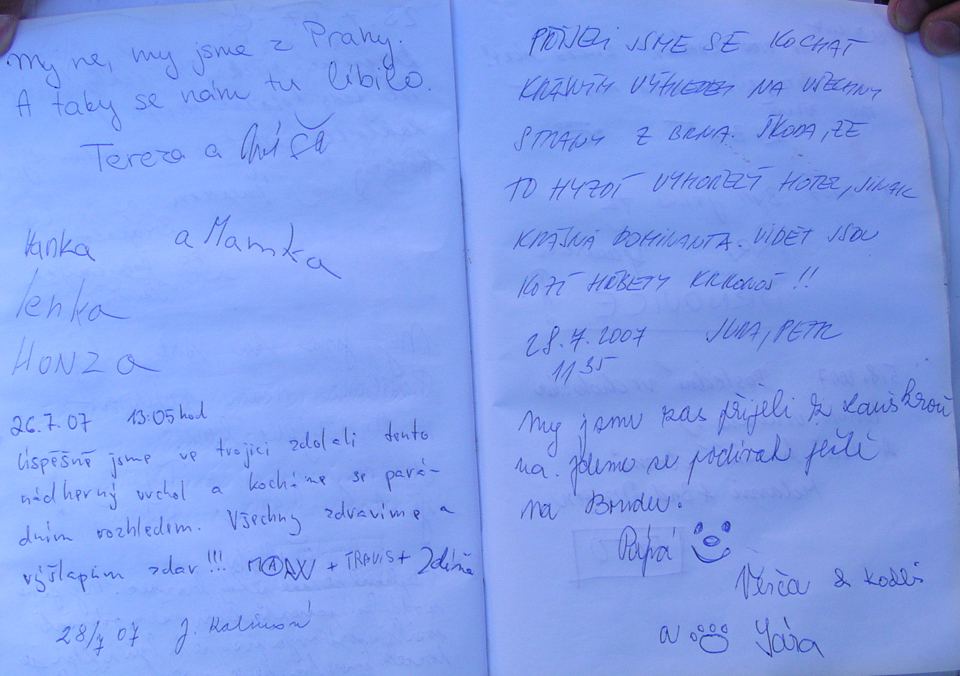 My ne, my jsme z Prahy.
A taky se nám tu líbilo.
Tereza a
Hanka a Mamka
lenka
HONZA
26.7.07 13:05 hod
Úspěšně jsme ve trojici zdolali tento
nádherný vrchol a kocháme se pará-
dním rozhledem. Všechny zdravíme a
výšlapům zdar!!! MAX + TRAVIS +
28/7 07 J.
PŘIJELI JSME SE KOCHAT
KRÁSNÝM VÝHLEDEM NA VŠECHNY
STRANY Z BRNA. ŠKODA, ŽE
TO HYZDÍ VYHOŘELÝ HOTEL, JINAK
KRÁSNÁ DOMINANTA. VIDĚT JSOU
KOZÍ HŘBETY KRKONOŠ!!
28.7.2007 JURA, PETR
11 35
My jsme zas přijeli z
na. Jdeme se podívat ještě
na
Pápá
Věrča &
a Jára